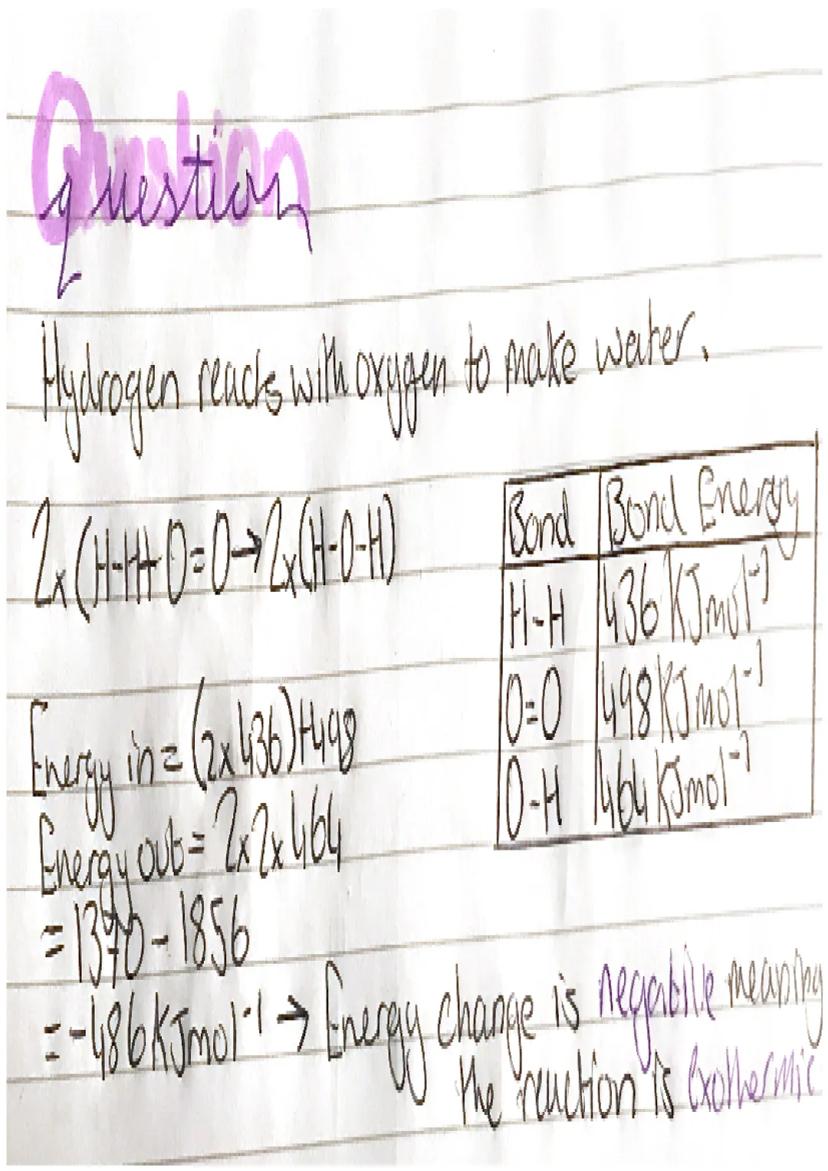 Question
question
Hydrogen reacts with oxygen to make water.
2x(H-H)+O=O→2x(H-O-H)
Bond | Bond Energy
H-H | 436 KJmol⁻¹
O=O | 498 KJmol⁻¹
O-H | 464 KJmol⁻¹
Energy in = (2x436)+498
Energy out = 2x2x464
= 1370 - 1856
= -486 KJmol⁻¹ → Energy change is negative meaning
the reaction is exothermic